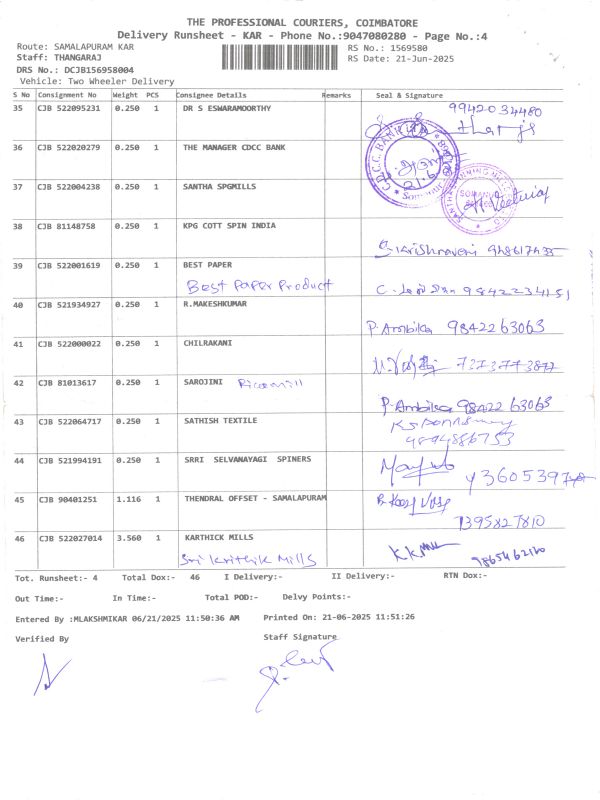 THE PROFESSIONAL COURIERS, COIMBATORE
Delivery Runsheet - KAR - Phone No.:9047080280 - Page No.:4
Route: SAMALAPURAM KAR
RS No.: 1569580
Staff: THANGARAJ
RS Date: 21-Jun-2025
DRS No.: DCJB156958004
Vehicle: Two Wheeler Delivery
S No Consignment No Weight PCS Consignee Details Remarks Seal & Signature
35 CJB 522095231 0.250 1 DR S ESWARAMOORTHY
9942034480
36 CJB 522020279 0.250 1 THE MANAGER CDCC BANK
37 CJB 522004238 0.250 1 SANTHA SPGMILLS
38 CJB 81148758 0.250 1 KPG COTT SPIN INDIA
39 CJB 522001619 0.250 1 BEST PAPER
Best Paper Product
9842234151
40 CJB 521934927 0.250 1 R.MAKESHKUMAR
P. Ambika 9842263063
41 CJB 522000022 0.250 1 CHILRAKANI
42 CJB 81013617 0.250 1 SAROJINI Ricemill
P. Ambika 98422 63063
43 CJB 522064717 0.250 1 SATHISH TEXTILE
9894886753
44 CJB 521994191 0.250 1 SRRI SELVANAYAGI SPINERS
45 CJB 90401251 1.116 1 THENDRAL OFFSET - SAMALAPURAM
7395827810
46 CJB 522027014 3.560 1 KARTHICK MILLS
Sri Krithik Mills
9865462120
Tot. Runsheet:- 4 Total Dox:- 46 I Delivery:- II Delivery:- RTN Dox:-
Out Time:- In Time:- Total POD:- Delvy Points:-
Entered By :MLAKSHMIKAR 06/21/2025 11:50:36 AM Printed On: 21-06-2025 11:51:26
Verified By Staff Signature